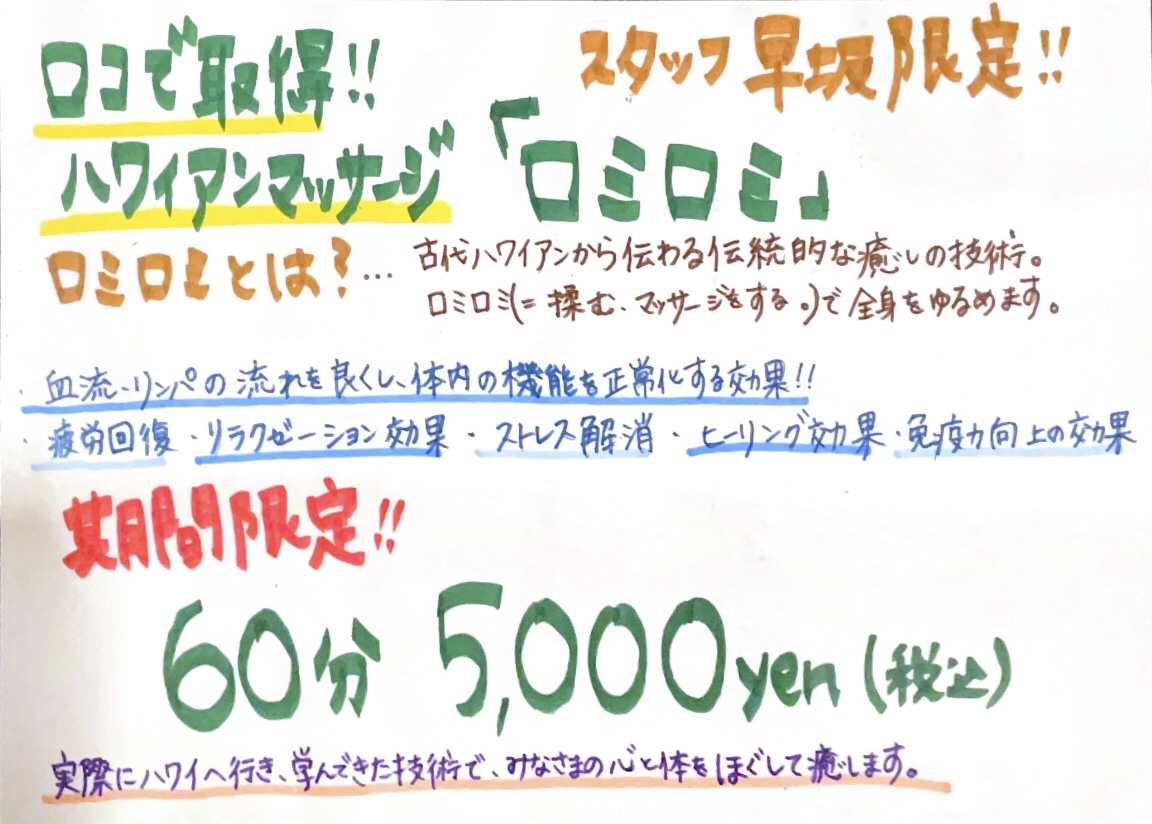 ロコで取得!!
スタッフ 早坂 限定!!
ハワイアンマッサージ 「ロミロミ」
ロミロミとは?… 古代ハワイアンから伝わる伝統的な癒しの技術。
ロミロミ(=揉む、マッサージをする。)で全身をゆるめます。
・血流・リンパの流れを良くし、体内の機能を正常化する効果!!
・疲労回復・リラクゼーション効果・ストレス解消・ヒーリング効果・免疫力向上の効果
期間限定!!
60分 5,000yen(税込)
実際にハワイへ行き、学んできた技術で、みなさまの心と体をほぐして癒します。